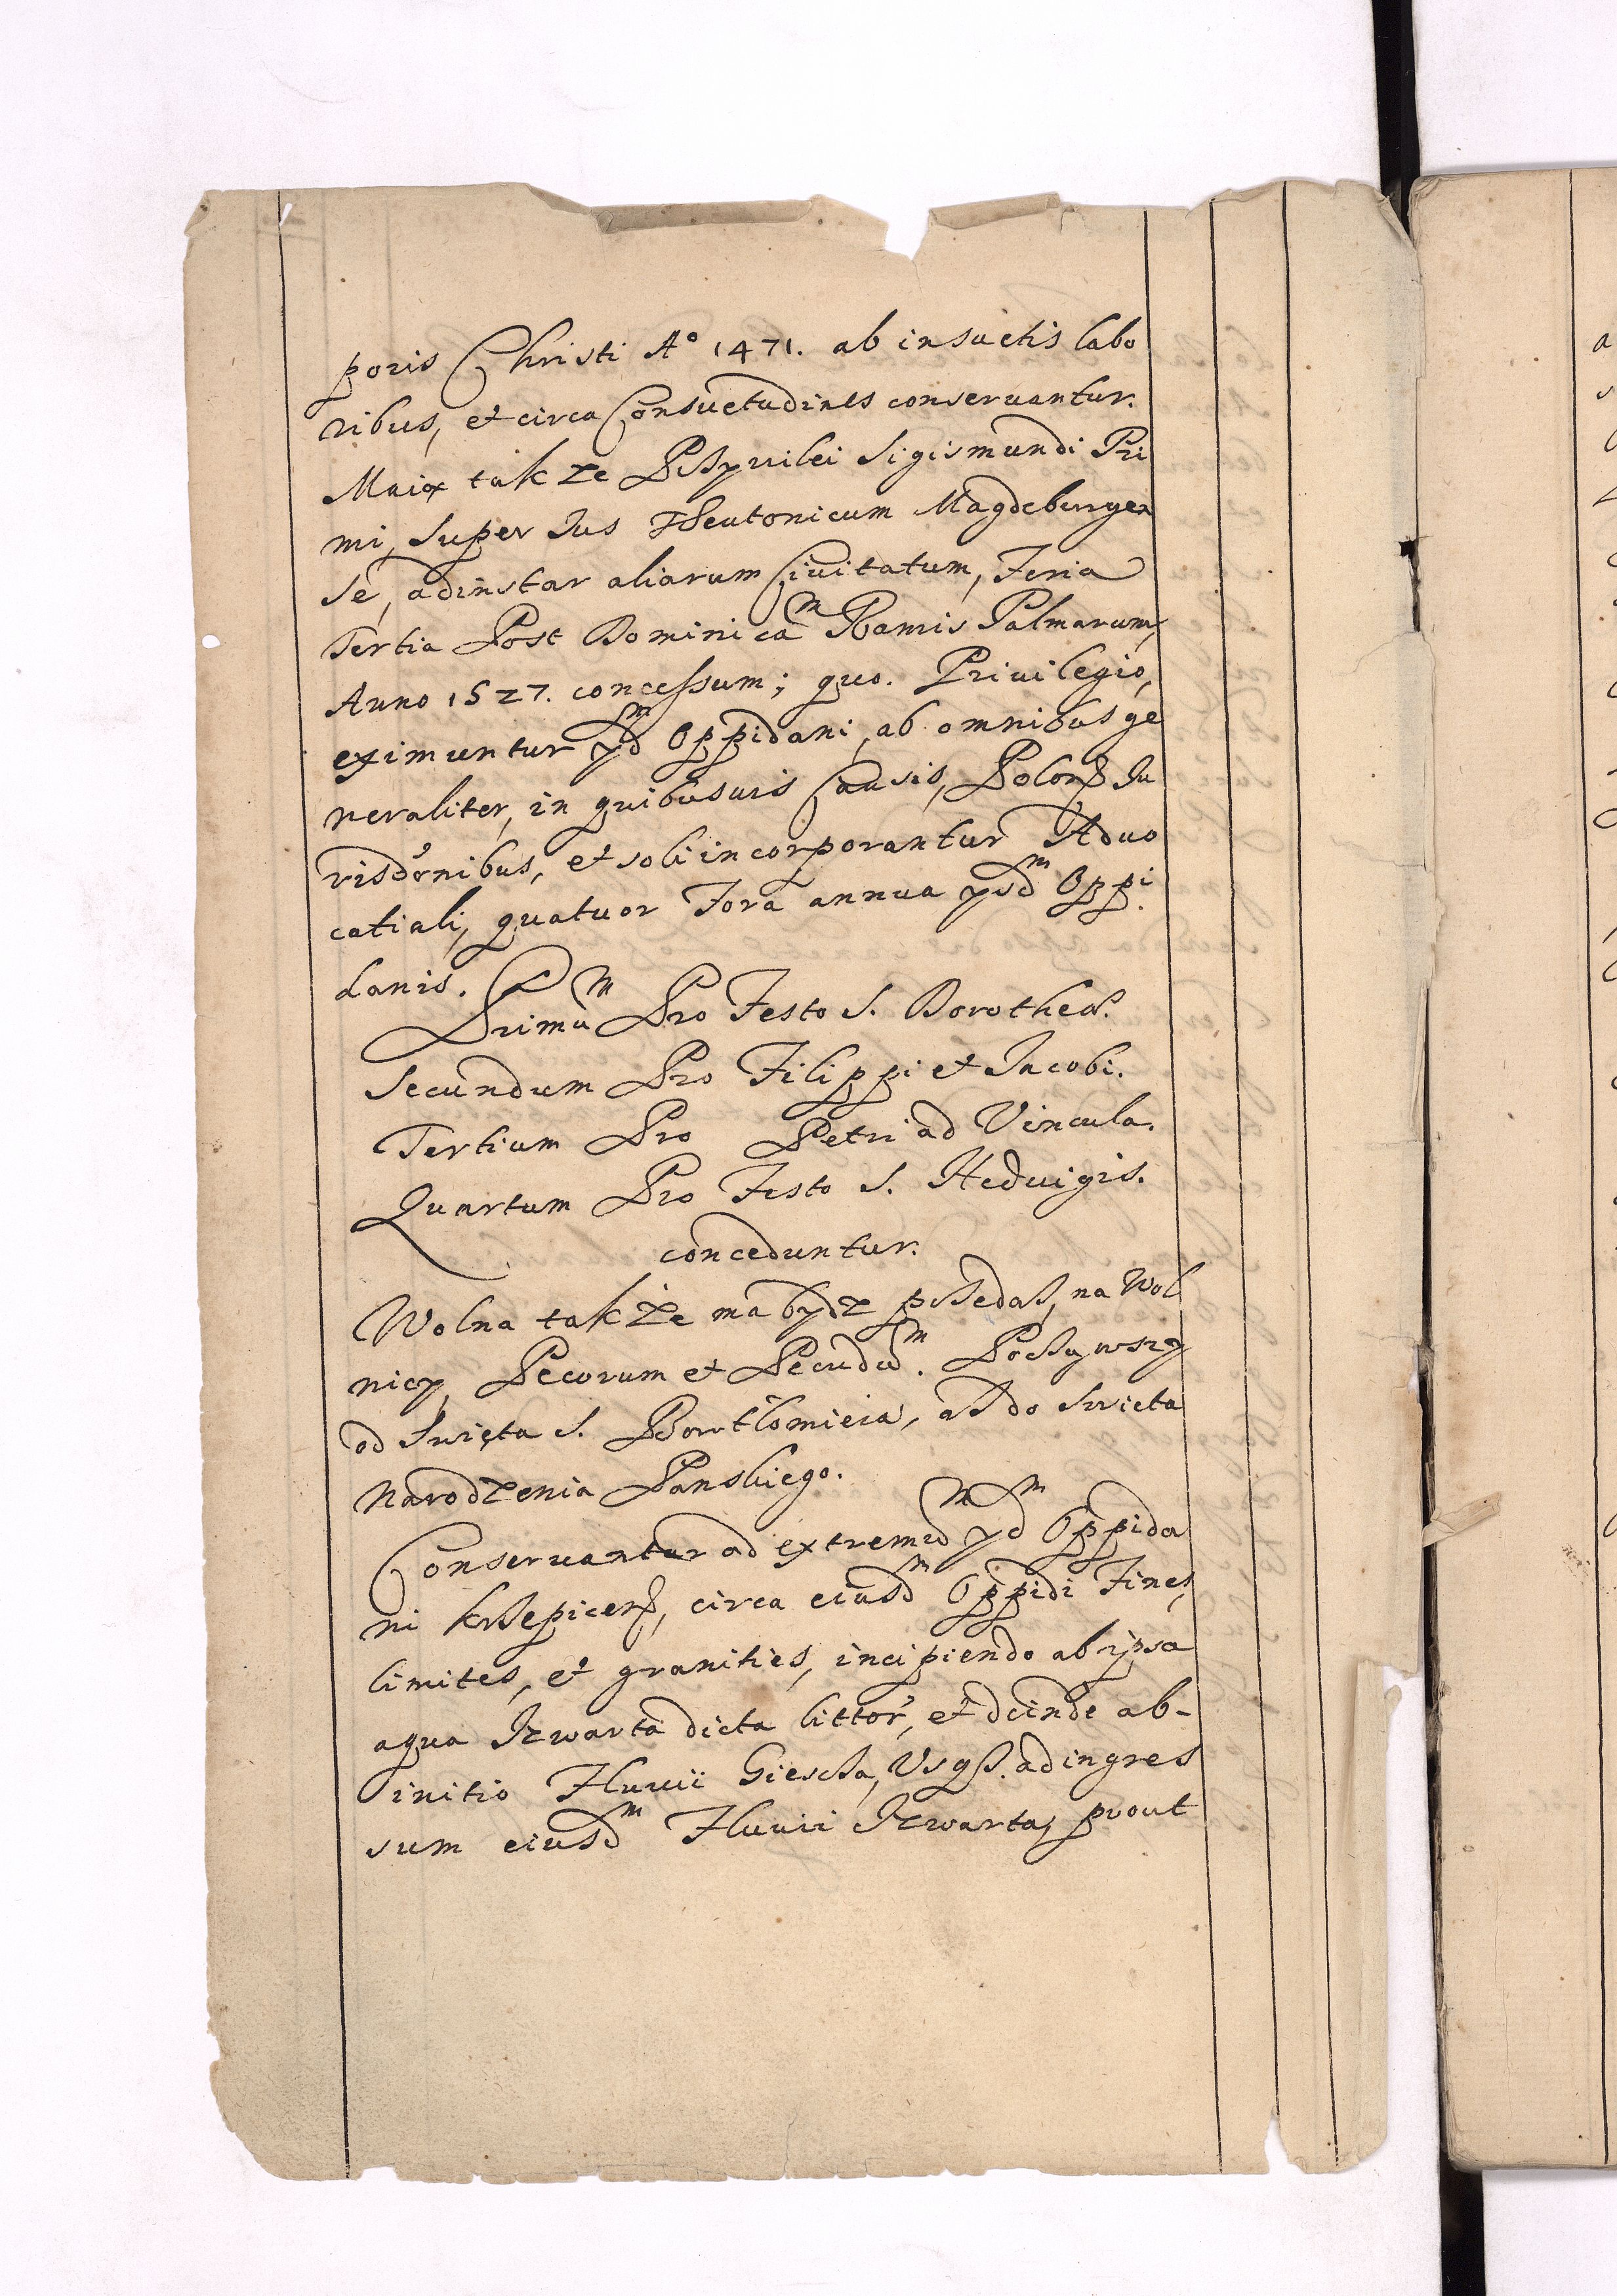 poris Christi A° 1471. ab insuetis labo
ribus, et circa Consuetudines conservantur.
Maią tak ze Przyvilei Sigismundi Pri
mi, super Ius Theutonicum Magdeburgen
se, adinstar aliarum Civitatum, Feria
Tertia Post Dominicam Ramis Palmarum,
Anno 1527. concessum; quo. Privilegio,
eximuntur ydm Oppidani, ab omnibus ge
neraliter, in quibusuis Causis, Polon Ju
risdonibus, et soli incorporantur Aduo
catiali, quatuor Fora annua ysdm Oppi
danis.
Primum Pro Festo S. Dorotheæ.
Secundum Pro Filippi et Jacobi.
Tertium Pro Petri ad Vincula.
Quartum Pro Festo S. Hedvigis.
conceduntur.
Wolna także ma bydz przedaż, na Wol
nicy, Pecorum et Pecudum. Począwszy
od Swięta S. Bartłomieia, aż do Swieta
Narodzenia Panskiego.
Conservantur ad extremum ydm Oppida
ni Krzepicen, circa eiusdm Oppidi Fines,
limites, et granities, incipiendo ab ipsa
aqua Izwarta dicta littor, et deinde ab-
initio Fluvii Giescza, Vsq. ad ingres
sum eiusdm Fluvii Izwarta, prout